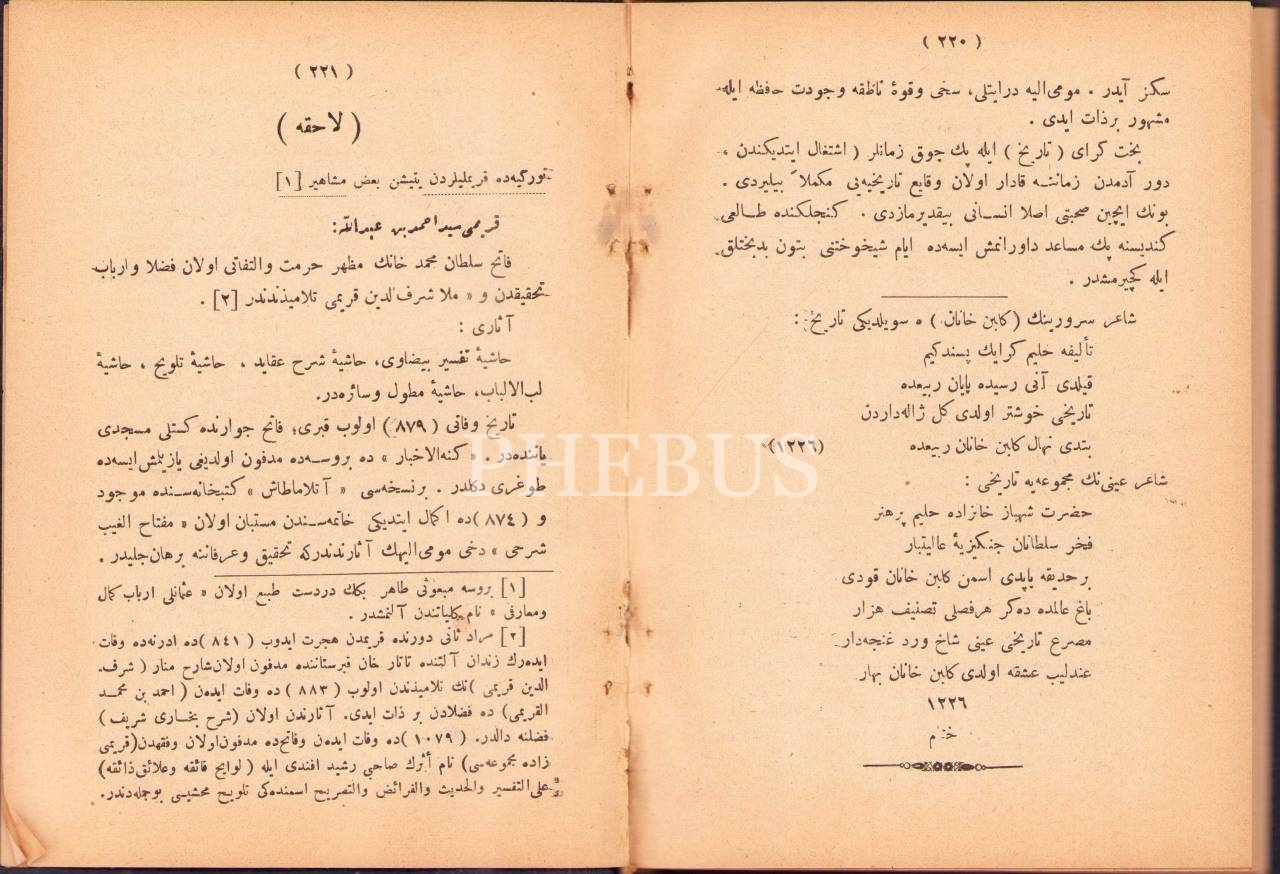 ( ٢٢٠ )
سكز آيدر . مومى اليه درايتلى، سخى وقوۀ ناطقه وجودت حافظه ايله
مشهور برذات ايدى .
بخت كراى ( تاريخ ) ايله پك چوق زمانلر ( اشتغال ايتديكندن ،
دور آدمدن زماننه قادار اولان وقايع تاريخيه‌يى مكملاً بيليردى .
بونك ايچين صحبتى اصلا انسانى بيقديرمازدى . كنجلكنده طالعى
كنديسنه پك مساعد داورانمش ايسه‌ده ايام شيخوختنى بتون بدبختلق
ايله كچيرمشدر .
شاعر سرورينك (كلبن خانان) ه سويلديكى تاريخ :
تأليفه حليم كرايك پسندكيم
قيلدى آنى رسيده پايان ربيعده
تاريخى خوشتر اولدى كل ژاله‌داردن
بتدى نهال كلبن خانان ربيعده (١٢٢٦)
شاعر عينى‌نك مجموعه‌يه تاريخى :
حضرت شهباز خانزاده حليم پرهنر
فخر سلطانان جنكيزيۀ عاليتبار
برحديقه ياپدى اسمن كلبن خانان قودى
باغ عالمده ده‌كر هرفصلى تصنيف هزار
مصرع تاريخى عينى شاخ ورد غنجه‌دار
عندليب عشقه اولدى كلبن خانان بهار
١٢٢٦
ختم
( ٢٢١ )
( لاحقه )
تورگيه‌ده قريمليلردن يتيشن بعض مشاهير [١]
قريمى سيد احمد بن عبدالله:
فاتح سلطان محمد خانك مظهر حرمت والتفاتى اولان فضلا وارباب
تحقيقدن و « ملا شرف الدين قريمى تلاميذندندر [٢] .
آثارى :
حاشيۀ تفسير بيضاوى، حاشيۀ شرح عقايد ، حاشيۀ تلويح ، حاشيۀ
لب الالباب، حاشيۀ مطول وسائره‌در.
تاريخ وفاتى ( ٨٧٩ ) اولوب قبرى؛ فاتح جوارنده كستلى مسجدى
ياننده‌در . « كنه الاخبار » ده بروسه‌ده مدفون اولديغى يازيلمش ايسه‌ده
طوغرى دكلدر . برنسخه‌سى « آتلاماطاش » كتبخانه‌سنده موجود
و ( ٨٧٤ )ده اكمال ايتديكى خاتمه‌سندن مستبان اولان « مفتاح الغيب
شرحى » دخى مومى اليهك آثارندندركه تحقيق وعرفاننه برهان جليدر .
[١] بروسه مبعوثى طاهر بكك دردست طبع اولان « عثمانلى ارباب كمال
ومعارفى » نام كلياتندن آلنمشدر .
[٢] مراد ثانى دورنده قريمدن هجرت ايدوب ( ٨٤١ )ده ادرنه‌ده وفات
ايده‌رك زندان آلتنده تاتار خان قبرستاننده مدفون اولان شارح منار ( شرف
الدين قريمى )نك تلاميذندن اولوب ( ٨٨٣ ) ده وفات ايدن ( احمد بن محمد
القريمى) ده فضلادن بر ذات ايدى. آثارندن اولان (شرح بخارى شريف)
فضلنه دالدر. ( ١٠٧٩ )ده وفات ايدەن وفاتحده مدفون اولان وفقهدن(قريمى
زاده مجموعه‌سى) نام أثرك صاحبى رشيد افندى ايله ( لوايح فائقه وعلائق ذائقه)
على التفسير والحديث والفرائض والتصريح اسمنده‌كى تلويح محشيسى بوجمله‌دندر.
PHEBUS